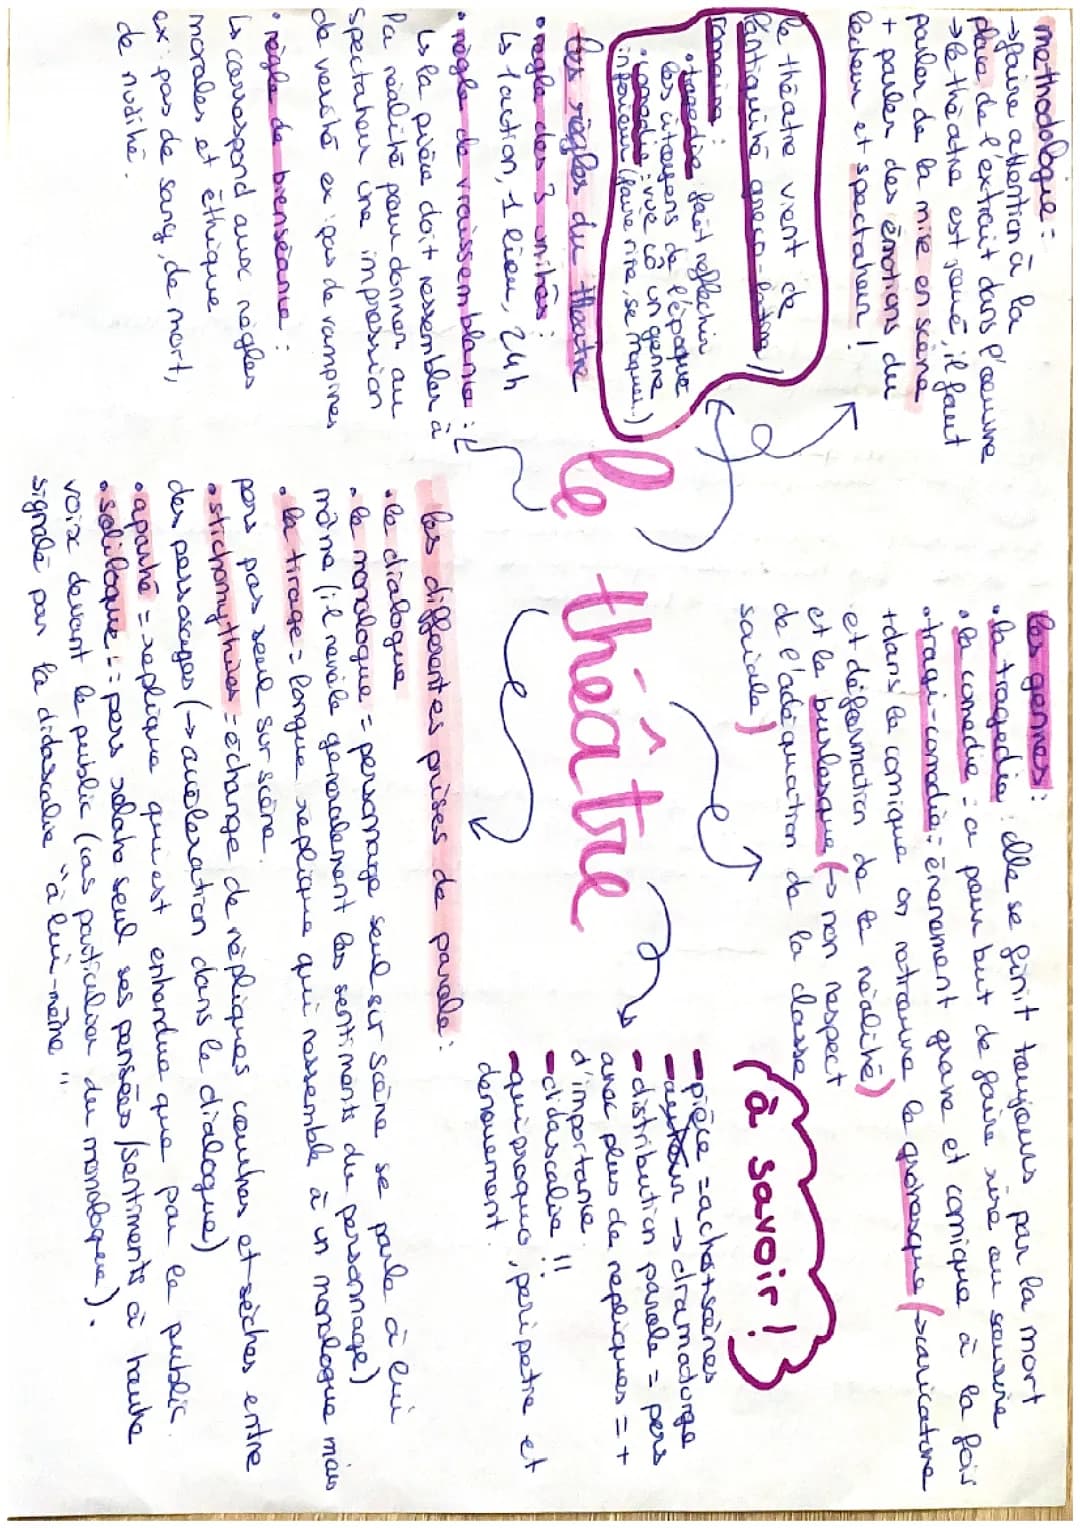 le théâtre
methodologie:
→ faire attention à la
place de l'extrait dans l'oeuvre
→ le théâtre est joué, il faut
parler de la mise en scène
+ parler des émotions du
lecteur et spectateur !
le théâtre vient de
l'antiquité greco-latine/
romaine :
• tragedie fait reflechir
les citoyens de l'époque
• comedie : vue cô un genre
inferieur (faire rire, se moquer..)
les règles du theatre
• regle des 3 unités :
↳ 1 action, 1 lieu, 24h
• règle de vraissemblance :
↳ la pièce doit ressembler à
la réalité pour donner au
spectateur une impression
de verité ex : pas de vampires
• règle de bienséance :
↳ correspond aux règles
morales et éthique
ex : pas de sang, de mort,
de nudité.
les genres :
• la tragedie : elle se finit toujours par la mort
• la comedie : a pour but de faire rire ou sourire
• tragi-comedie : évenement grave et comique à la fois
+ dans le comique on retrouve le grotesque (→ caricature
et déformation de la réalité)
et le burlesque (→ non respect
de l'adéquation de la classe
sociale)
à savoir !
- pièce = actes + scènes
- auteur → dramaturge
- distribution parole = pers
avec plus de repliques = +
d'importance
- didascalie !!
- quiproquo, peripetie et
denouement.
les differentes prises de parole :
• le dialogue
• le monologue = personage seul sur scène se parle à lui
même (il revèle generalement les sentiments du personnage)
• la tirage = longue replique qui ressemble à un monologue mais
pers pas seul sur scène.
• stichomythies = échange de répliques courtes et sèches entre
des personages (→ accéleration dans le dialogue)
• aparté = replique qui est entendue que par le public.
• soliloque : = pers relate seul ses pensées / sentiments à haute
voix devant le public (cas particulier du monologue).
signalé par la didascalie "à lui-même"